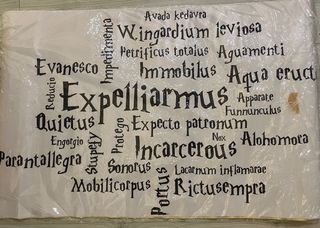 Avada kedavra
Wingardium leviosa
Impedimenta
Petrificus totalus
Aguamenti
Evanesco
Immobilus
Aqua eruct
Reducio
Expelliarmus
Apparate
Funnunculus
Quietus
Protego
Expecto patronum
Engorgio
Stupefy
Nox
Alohomora
Incarcerous
Parantallegra
Sonorus
Lacarnum inflamarae
Mobilicorpus
Portus
Rictusempra